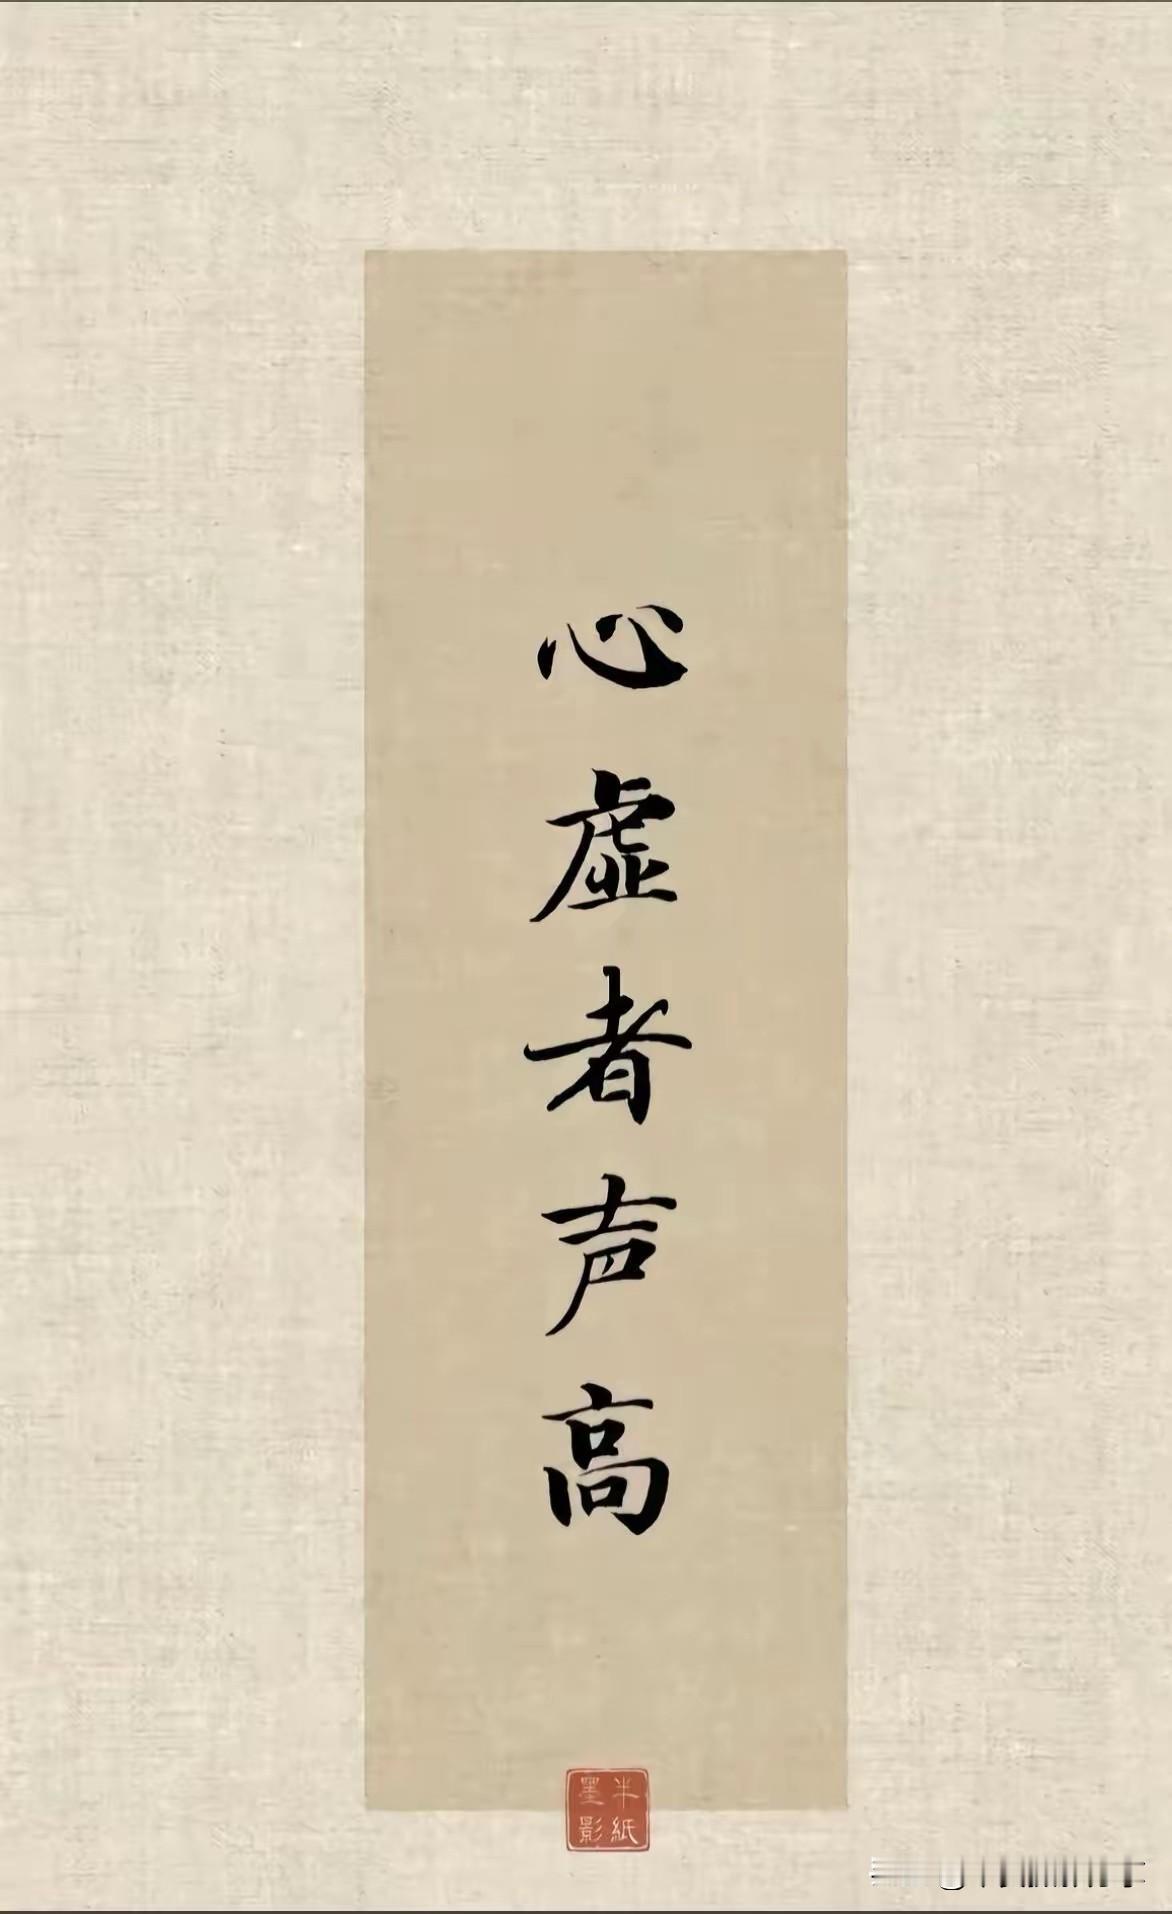 心虚者声高
半紙墨影